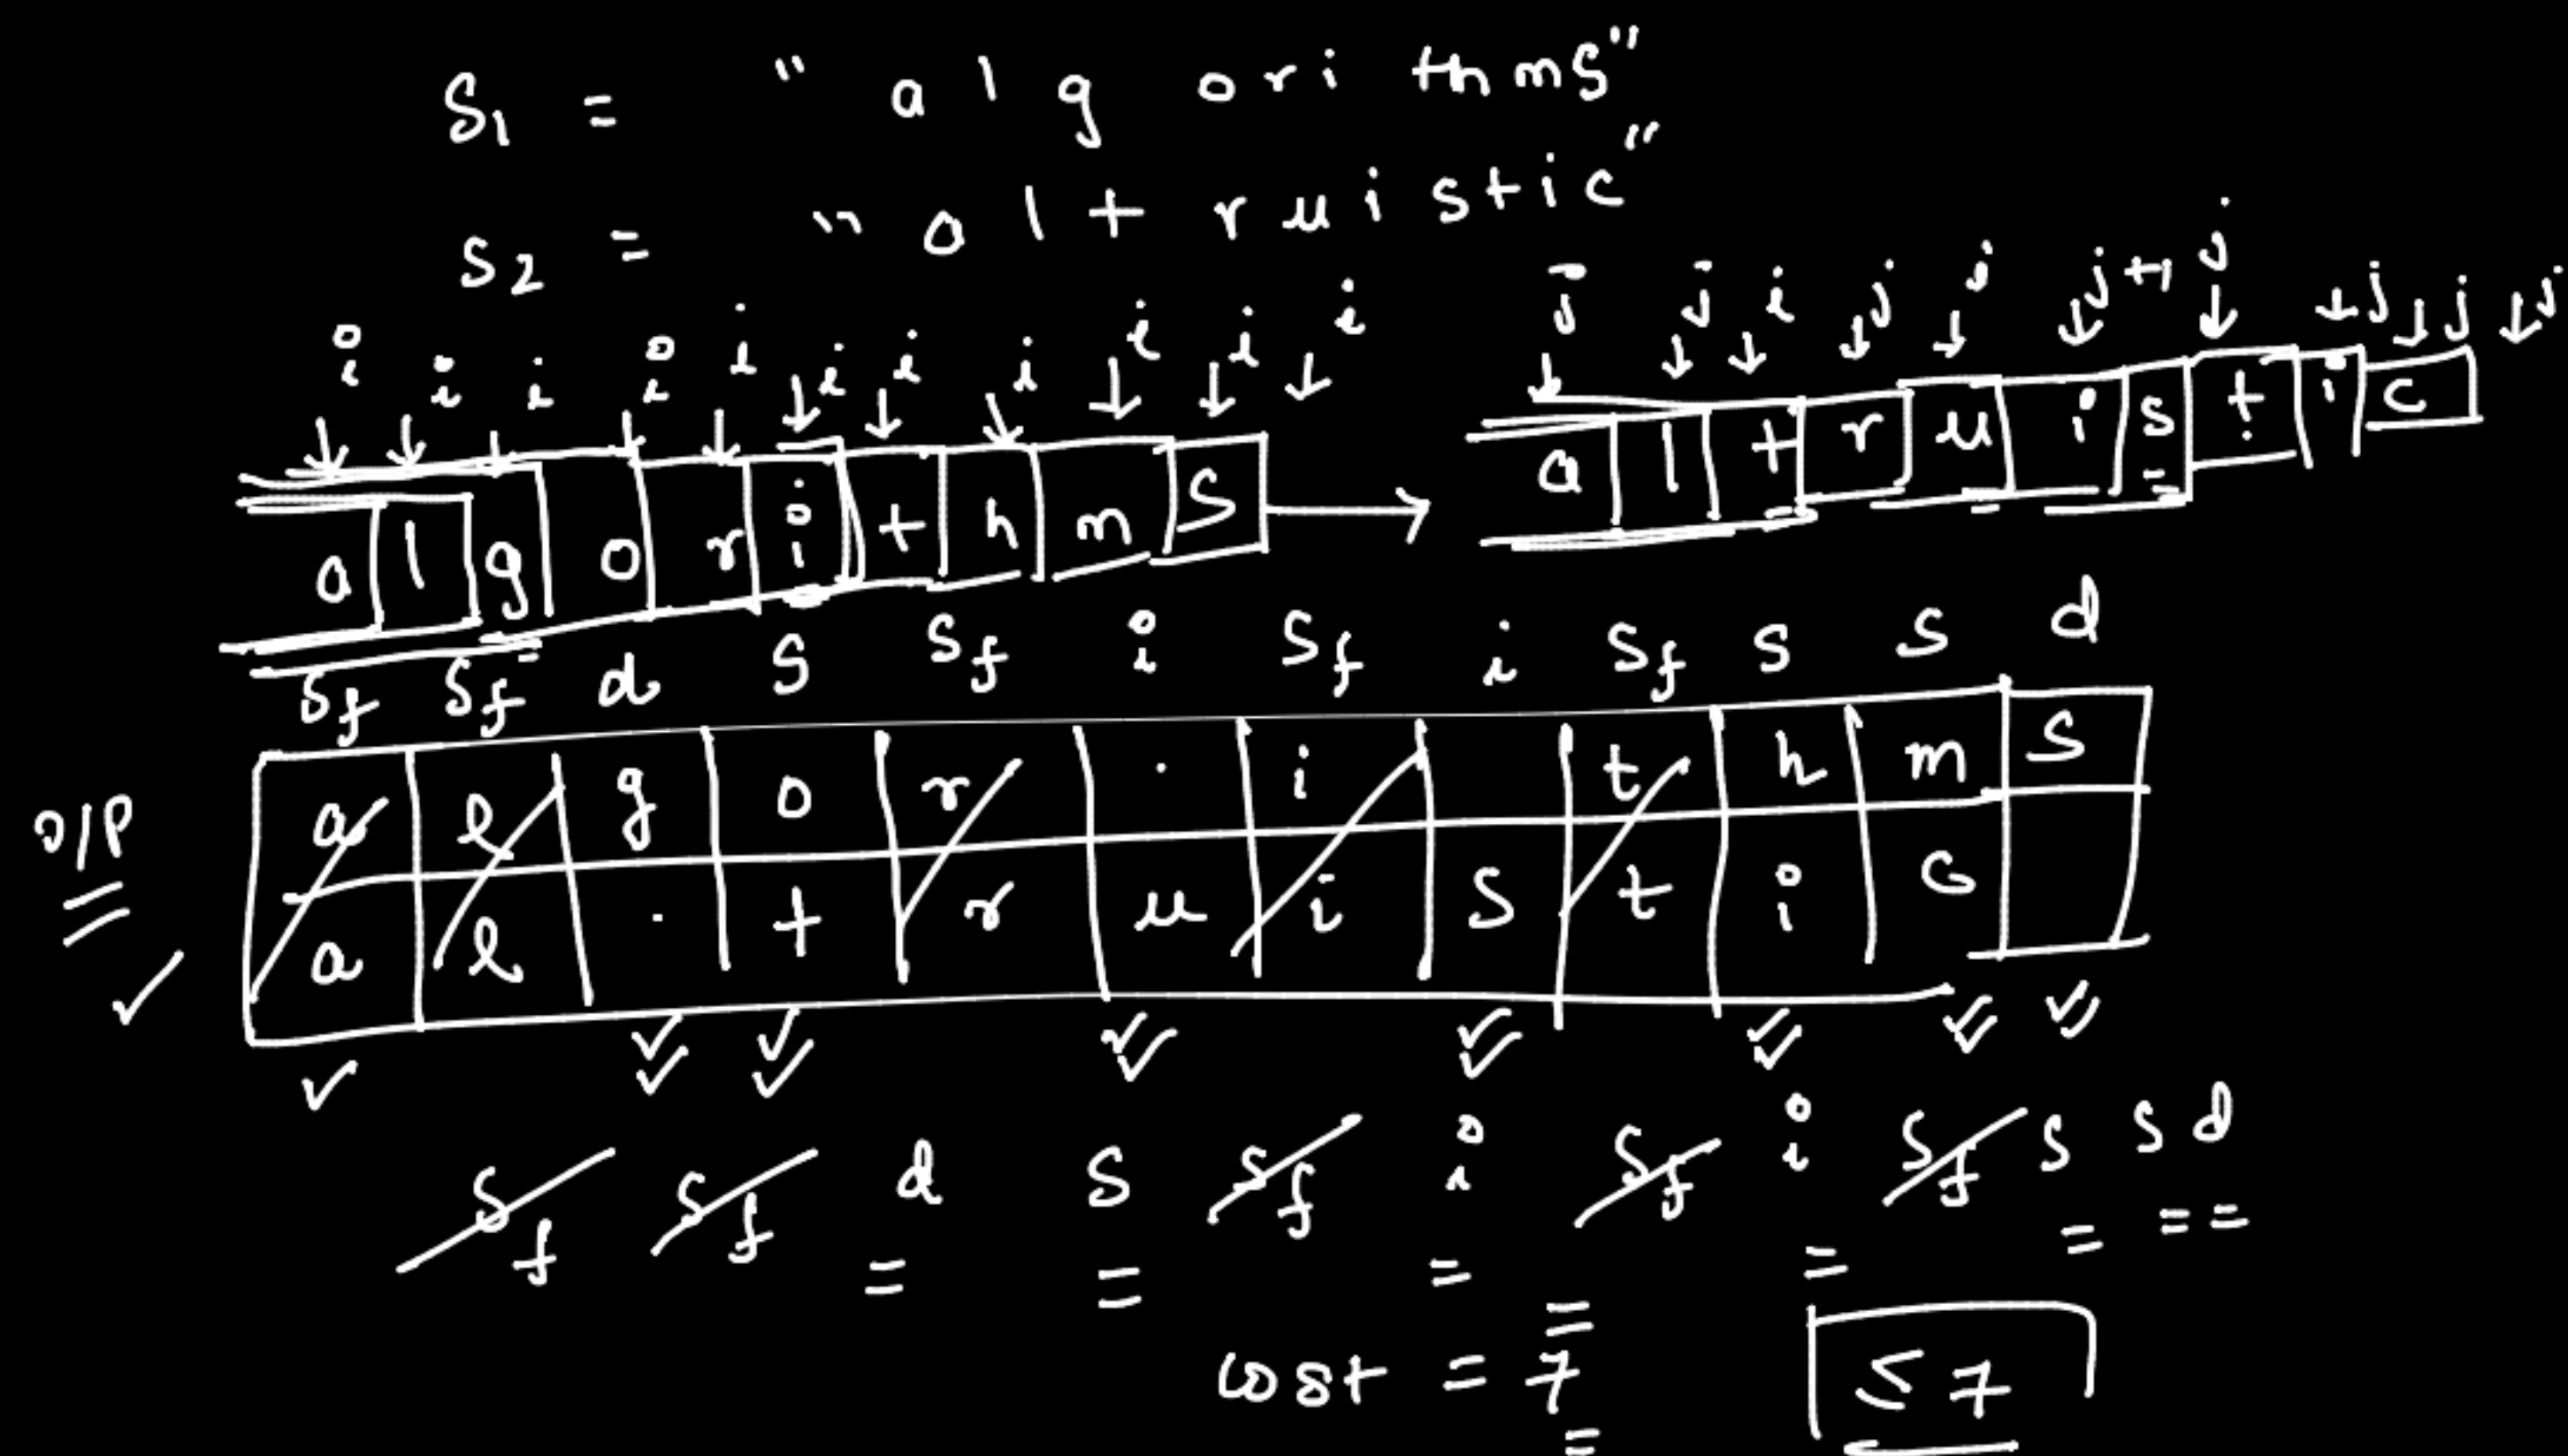 S1 = " a l g o r i t h m s "
S2 = " a l t r u i s t i c "
i i i i i i i i i i i j j i j j j+1 j j j j
a l g o r i t h m s → a l t r u i s t i c
Sf Sf d S Sf i Sf i Sf S S d
a l g o r . i t h m s
O/P
a l . t r u i s t i c
Sf Sf d S Sf i Sf i Sf S S d
cost = 7 ≤ 7